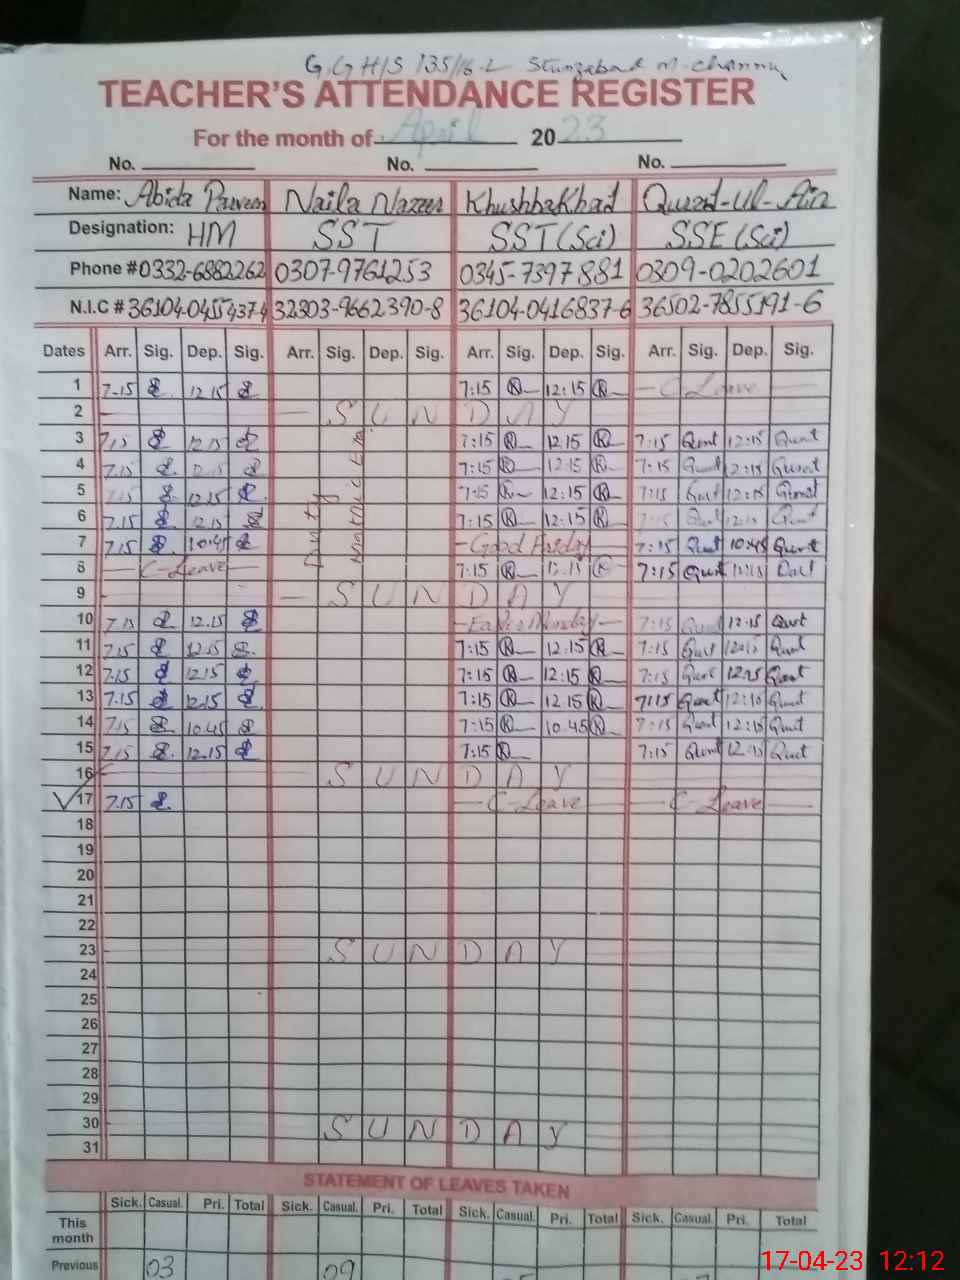 G.G.H/S 135/16-L M-Channu
TEACHER'S ATTENDANCE REGISTER
For the month of April 2023
No. No. No.
Name: Abida Parveen Naila Nazeer Khushba Khad Qurat-ul-Ain
Designation: HM SST SST (Sci) SSE (Sci)
Phone # 0332-6882262 0307-9761253 0345-7397881 0309-0202601
N.I.C # 36104-0455437-4 32303-9662390-8 36104-0416837-6 36502-7855191-6
Dates Arr. Sig. Dep. Sig. Arr. Sig. Dep. Sig. Arr. Sig. Dep. Sig. Arr. Sig. Dep. Sig.
1 7.15 12.15 7:15 R 12:15 R C-Leave
2 SUNDAY
3 7.15 12.15 7:15 R 12.15 R 7:15 Qurat 12:15 Qurat
4 7.15 12.15 7:15 R 12:15 R 7:15 Qurat 12:15 Qurat
5 7.15 12.15 Duty 7:15 R 12:15 R 7:15 Qurat 12:15 Qurat
6 7.15 12.15 7:15 R 12:15 R 7:15 Qurat 12:15 Qurat
7 7.15 10.45 Good Friday 7:15 Qurat 10:45 Qurat
8 C-Leave 7:15 R 12:15 R 7:15 Qurat 12:15 Qurat
9 SUNDAY
10 7.15 12.15 Easter Monday 7:15 Qurat 12:15 Qurat
11 7.15 12.15 7:15 R 12:15 R 7:15 Qurat 12:15 Qurat
12 7.15 12.15 7:15 R 12:15 R 7:15 Qurat 12:15 Qurat
13 7.15 12.15 7:15 R 12.15 R 7:15 Qurat 12:15 Qurat
14 7.15 10.45 7:15 R 10.45 R 7:15 Qurat 12:15 Qurat
15 7.15 12.15 7:15 R 7:15 Qurat 12:15 Qurat
16 SUNDAY
17 7.15 C-Leave C-Leave
18
19
20
21
22
23 SUNDAY
24
25
26
27
28
29
30 SUNDAY
31
STATEMENT OF LEAVES TAKEN
Sick. Casual. Pri. Total Sick. Casual. Pri. Total Sick. Casual. Pri. Total Sick. Casual. Pri. Total
This month
Previous 03 09
17-04-23 12:12